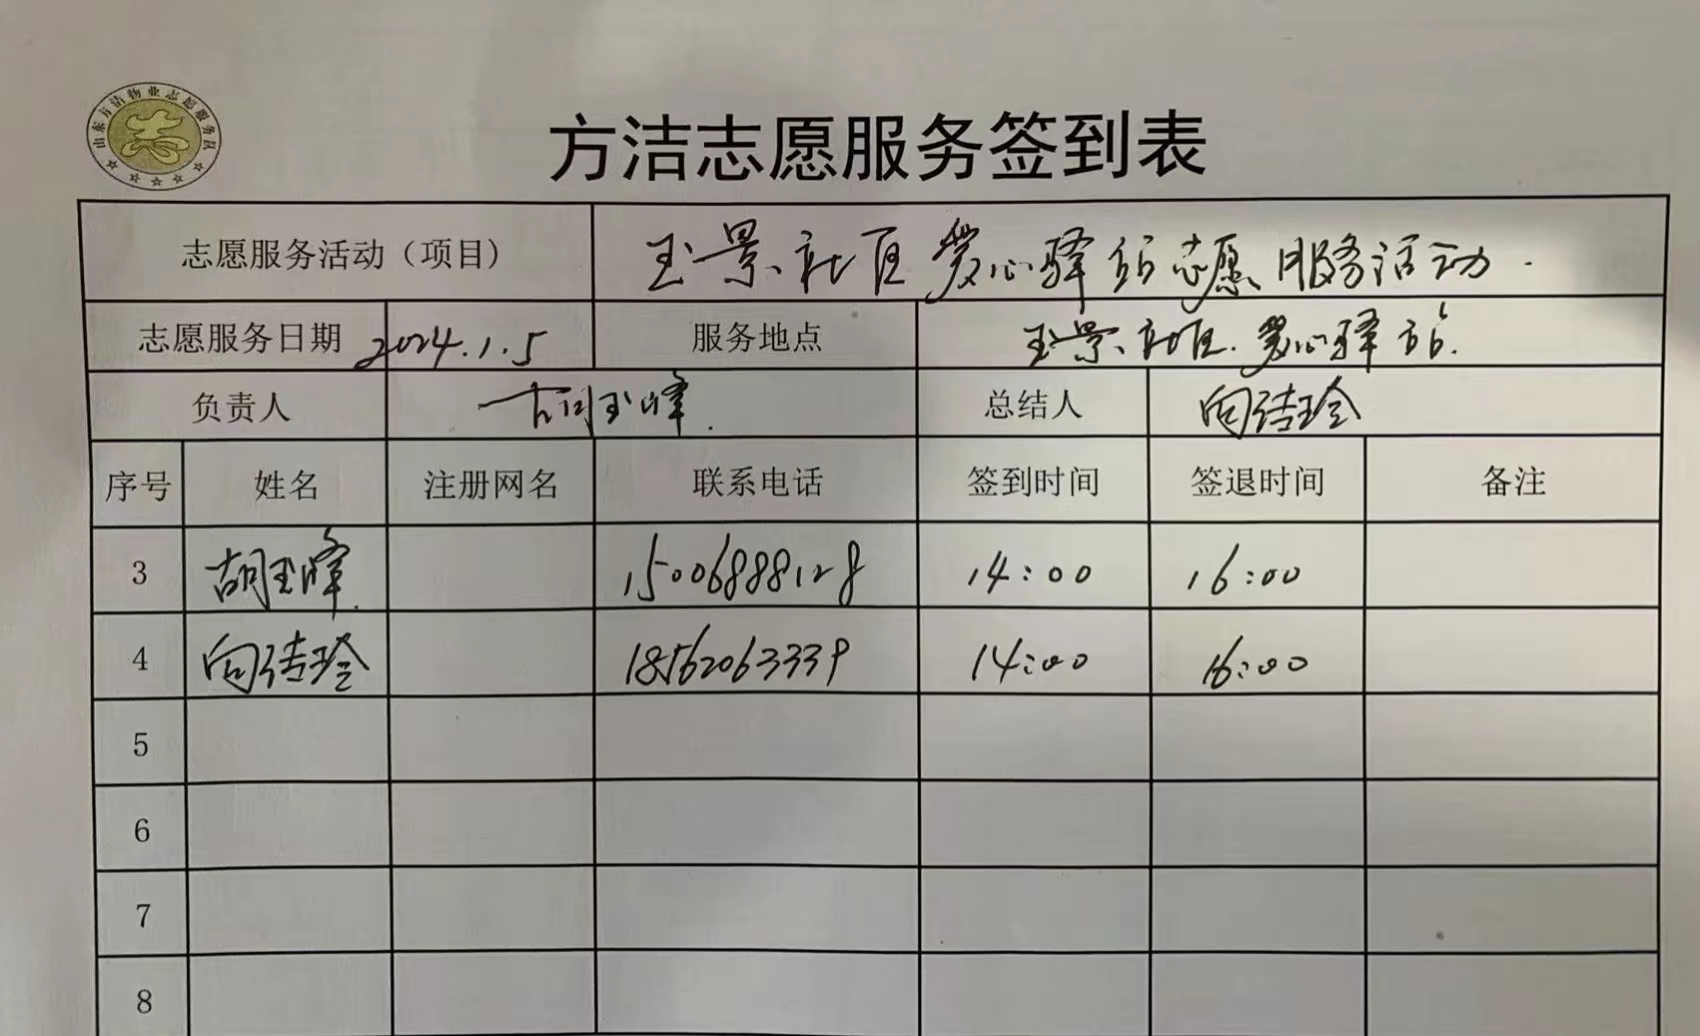 山东方洁物业志愿服务队
方洁志愿服务签到表
志愿服务活动（项目） 玉景社区爱心驿站志愿服务活动.
志愿服务日期 2024.1.5 服务地点 玉景社区.爱心驿站.
负责人 胡玉峰. 总结人 向洁玲
序号 姓名 注册网名 联系电话 签到时间 签退时间 备注
3 胡玉峰. 15006888128 14:00 16:00
4 向洁玲 18562063339 14:00 16:00
5
6
7
8